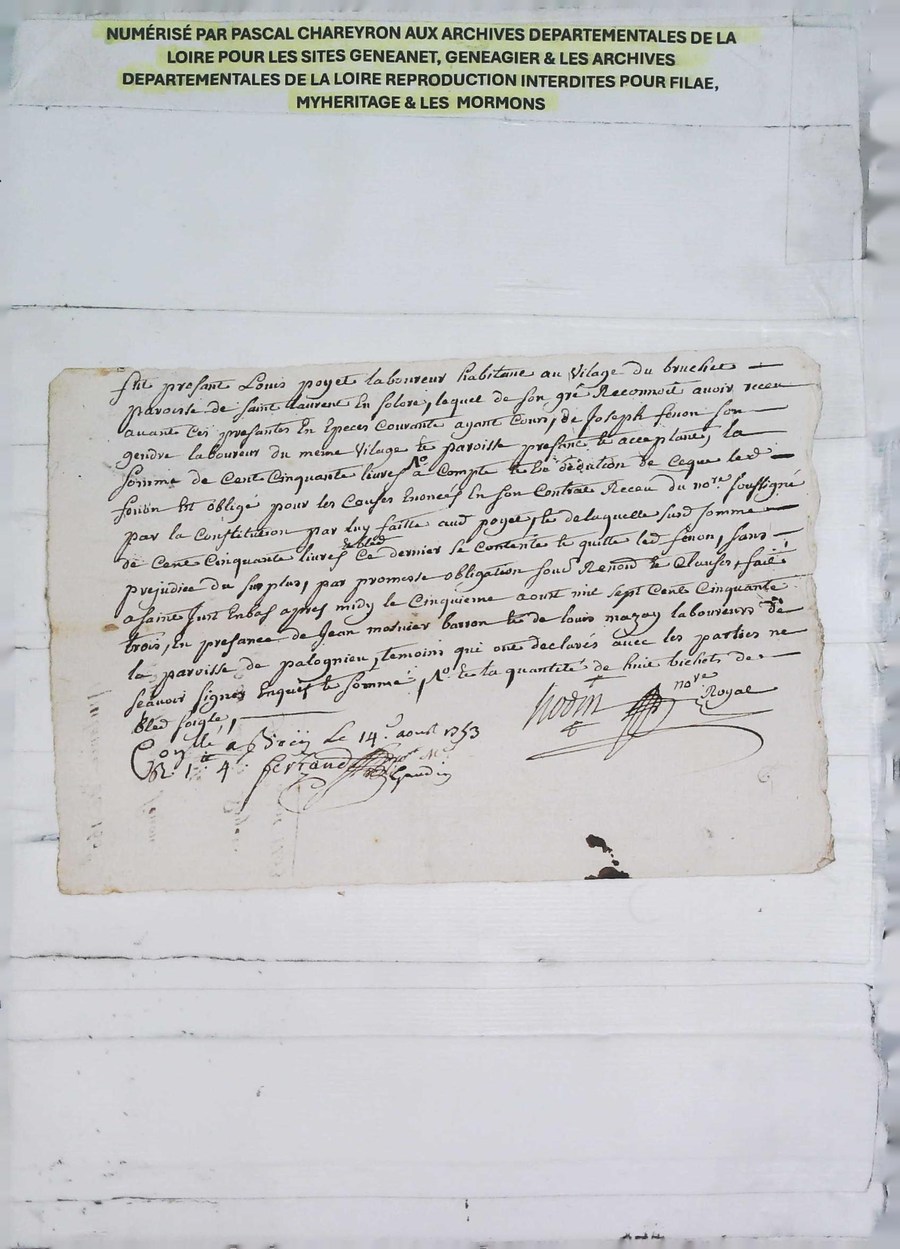 NUMÉRISÉ PAR PASCAL CHAREYRON AUX ARCHIVES DEPARTEMENTALES DE LA
LOIRE POUR LES SITES GENEANET, GENEAGIER & LES ARCHIVES
DEPARTEMENTALES DE LA LOIRE REPRODUCTION INTERDITES POUR FILAE,
MYHERITAGE & LES MORMONS
fut presant Louis poyet laboureur habitant au vilage du bruchet
paroisse de saint Laurent En solore, lequel de son gré Reconnoit avoir receu
avant ces presantes En Epeces Courante ayant cours, de Joseph fenon son
gendre laboureur du meme vilage & paroisse presant & acceptant, la
somme de Cent Cinquante livres No a compte & En de ceque led
fenon Est obligé pour les Causes Enoncés En son Contrat Receu du nore soussigné
par la Constitution par luy faitte aud poyet, & delaquelle susd somme
de Cent Cinquante livres & bled Ce dernier se Contente & quitte led fenon, sans
prejudice du surplus, par promesse obligation soub Renond & Clauses, fait
a saint Just Enbas apres midy le Cinquieme aoust mil sept Cent Cinquante
trois, En presance de Jean mosnier barron & de louis mazay laboureurs de
la paroisse de palognieu, temoins qui ont declarés avec les parties ne
sçavoir signer Enquis & sommés, No & la quantité de huit bichets de
bled seigle,
nore
Royal
Con llé a le 14e aoust 1753
R. 4
Gaudin